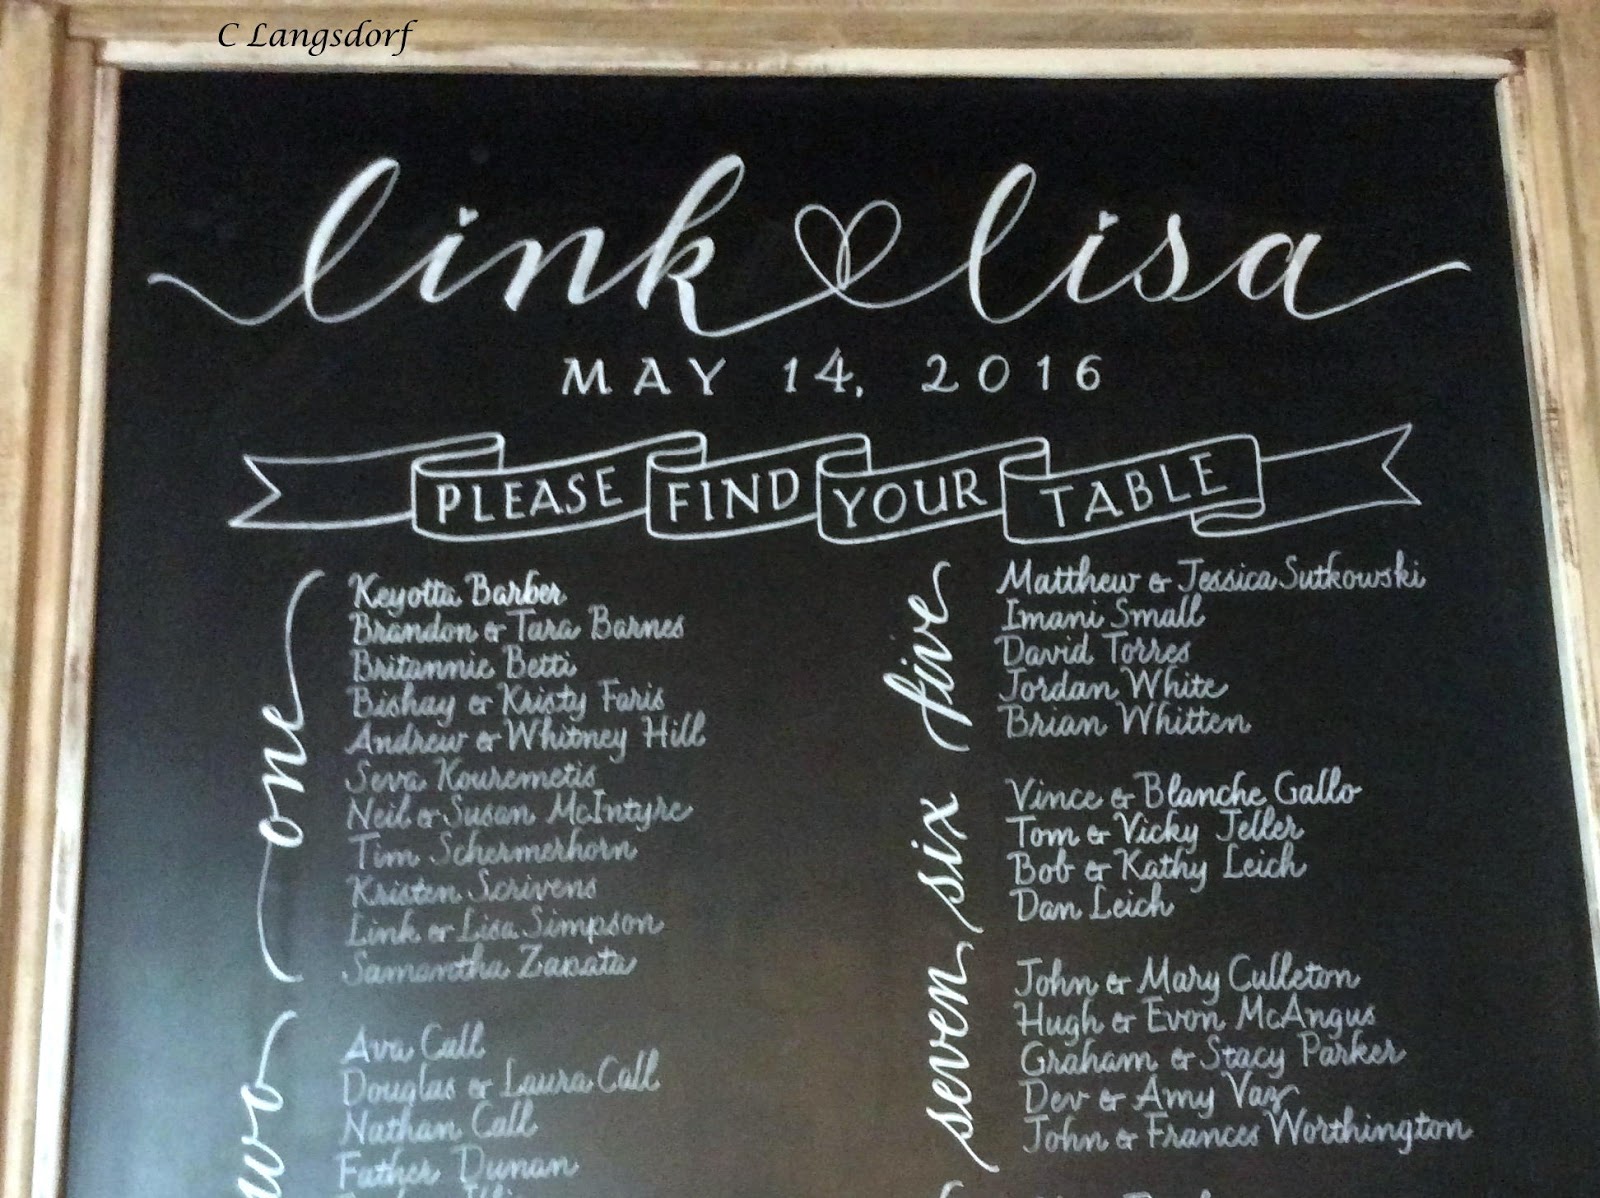 C Langsdorf
link lisa
MAY 14, 2016
PLEASE FIND YOUR TABLE
one
Keyotta Barber
Brandon & Tara Barnes
Britannie Betti
Bishay & Kristy Faris
Andrew & Whitney Hill
Seva Kouremetis
Neil & Susan McIntyre
Tim Schermerhorn
Kristen Scrivens
Link & Lisa Simpson
Samantha Zapata
two
Ava Call
Douglas & Laura Call
Nathan Call
Father Dunan
five
Matthew & Jessica Sutkowski
Imani Small
David Torres
Jordan White
Brian Whitten
six
Vince & Blanche Gallo
Tom & Vicky Jeller
Bob & Kathy Leich
Dan Leich
seven
John & Mary Culleton
Hugh & Evon McAngus
Graham & Stacy Parker
Dev & Amy Vaz
John & Frances Worthington